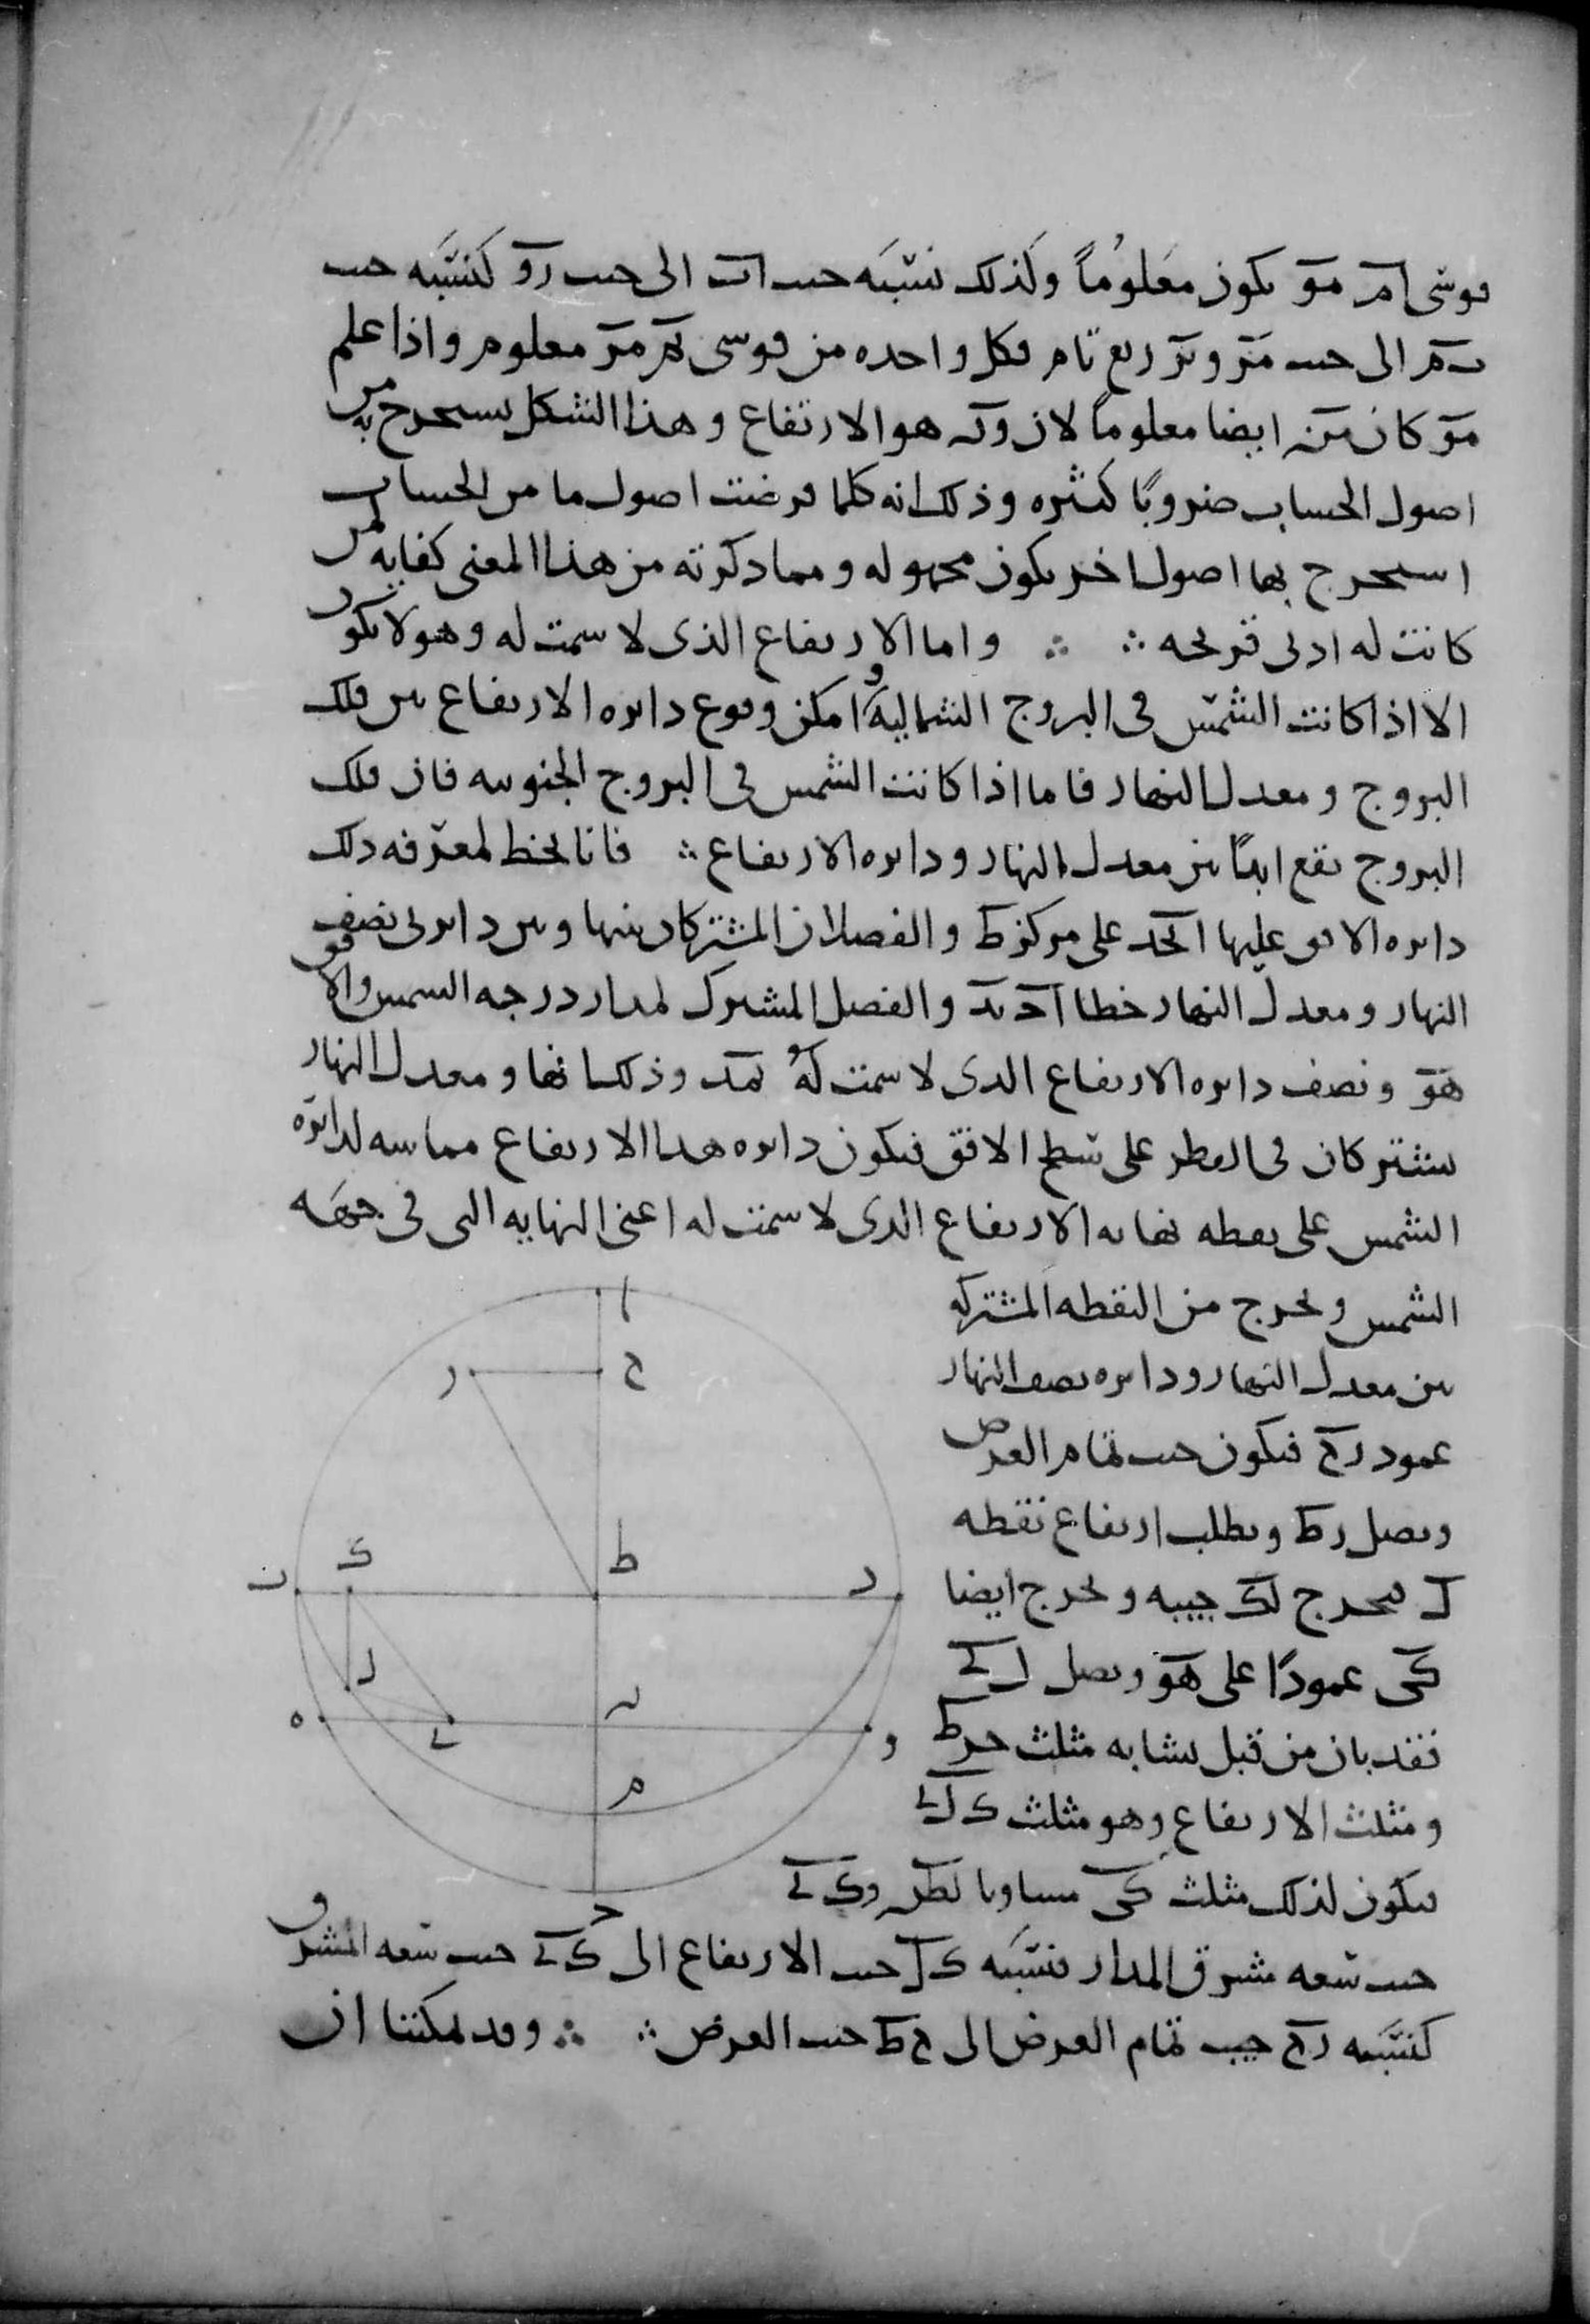 قوسى ام مو يكون معلومًا وكذلك نسبه جيب اب الى جيب رو كنسبه جيب
ب م الى جيب مر و بر ربع تام فكل واحده من قوسى بم مر معلوم واذا علم
مو كان من ايضا معلومًا لان ون هو الارتفاع وهذا الشكل يستخرج به من
اصول الحساب ضروبًا كثيره وذلك انه كلما فرضت اصول ما من الحساب
استخرج بها اصول اخر يكون مجهوله ومما ذكرته من هذا المعنى كفايه لمن
كانت له ادنى قريحه ∴ ∴ واما الارتفاع الذى لا سمت له وهو لا يكون
الا اذا كانت الشمس فى البروج الشماليه وامكن وقوع دايره الارتفاع بين فلك
البروج ومعدل النهار فاما اذا كانت الشمس فى البروج الجنوبيه فان فلك
البروج يقع ابدًا بين معدل النهار ودايره الارتفاع ∴ فانا نخط لمعرفه ذلك
دايره الافق عليها ا ب ج د على مركز ط والفصلان المشتركان بينها وبين دايرتى نصف
النهار ومعدل النهار خطا اج بد والفصل المشترك لمدار درجه الشمس والافق
هو ونصف دايره الارتفاع الذى لا سمت له بمد وذلك انها ومعدل النهار
يشتركان فى القطر على سطح الافق فيكون دايره هذا الارتفاع مماسه لدايره
الشمس على نقطه نهايه الارتفاع الذى لا سمت له اعنى النهايه التى فى جهه
الشمس ونخرج من النقطه المشتركه
بين معدل النهار ودايره نصف النهار
عمود رح فيكون جيب تمام العرض
ونصل رط ونطلب ارتفاع نقطه
ل فنخرج لك جيبه ونخرج ايضا
كى عمودًا على هو ونصل لى
فقد بان من قبل تشابه مثلث حرط
ومثلث الارتفاع وهو مثلث ك لى
فيكون لذلك مثلث كى مساويا لطن وك ى
جيب سعه مشرق المدار فنسبه ك ل جيب الارتفاع الى ك ى جيب سعه المشرق
كنسبه رح جيب تمام العرض الى ح ط جيب العرض ∴ ∴ وقد يمكننا ان
ا
ح
ر
ط
ك
ب
د
ل
ن
ه
ى
و
م
ج